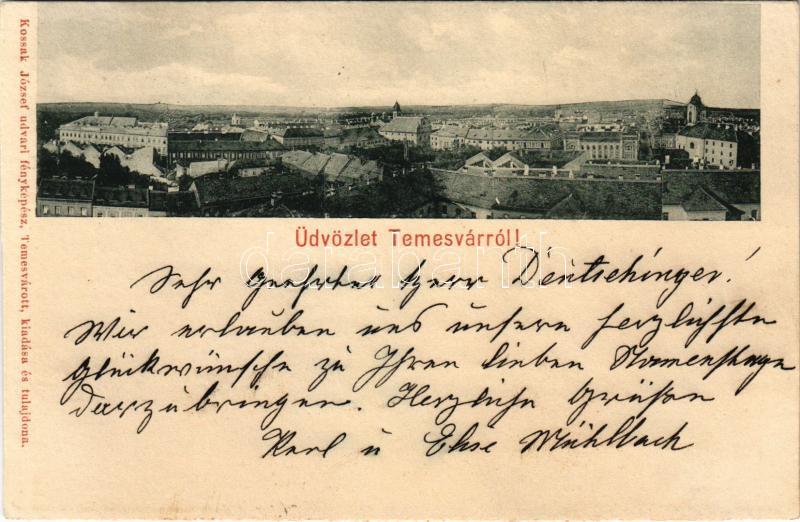 Kossak József udvari fényképész, Temesvárott, kiadása és tulajdona.
Üdvözlet Temesvárról!
darabanth
Sehr Geehrter Herr Deutschinger!
Wir erlauben uns unsern herzlichsten
Glückwünsche zu Ihren lieben Namenstage
darzubringen. Herzliche Grüßen
Karl u Else Mühlbach